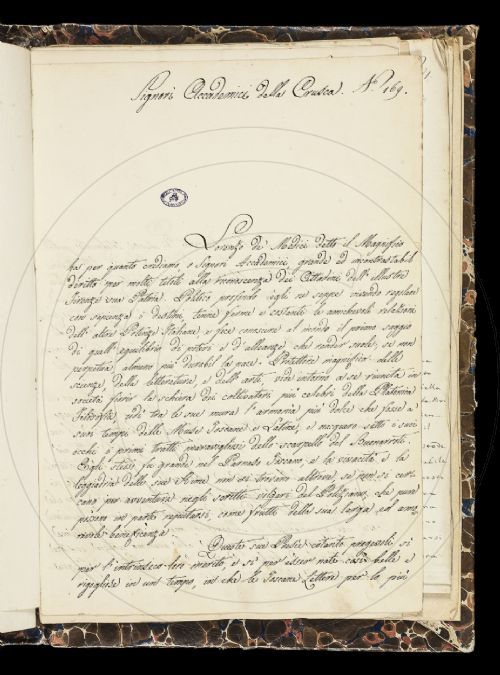 Signori Accademici della Crusca. N.° 169.
Lorenzo de' Medici detto il Magnifico
ha per quanto crediamo, o Signori Accademici, grande ed incontrastabile
diritto per molti titoli alla riconoscenza dei Cittadini dell' illustre
Firenze sua Patria. Politico profondo egli sé seppe essendo regolare
con sapienza i destini, tenne ferme e costanti le amichevoli relazioni
dell' altre Potenze Italiane e fece conoscere al mondo il primo saggio
di quell' equilibrio di poteri e d'alleanze che render suole, se non
perpetua, almeno più durabil la pace. Protettore magnifico delle
scienze, della letteratura, e dell' arti, vide intorno a se riunita in
società fiorir la schiera dei coltivatori più celebri della Platonica
Filosofia, udì tra le sue mura l'armonia più dolce che fosse a
suoi tempi delle Muse Toscane e Latine, e nacquero sotto i suoi
occhi i primi tratti maravigliosi dello scarpello del Buonarroti.
Egli stesso fu grande nel Parnaso Toscano, e la vivacità e la
leggiadria delle sue Rime non si trovano altrove, se non si cer-
cano per avventura negli scritti volgari del Poliziano, che pure
possono in parte reputarsi come frutto della sua larga ed amo-
revole beneficenza.
Queste sue Poesie cotanto pregevoli sì
per l' intrinseco lor merito, e sì per esser nate così belle e
rigogliose in un tempo, in che le Toscane Lettere per lo più